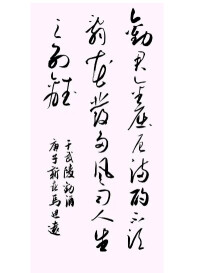 勸君金屈卮滿酌不須
辭花發多風雨人生
足別離
于武陵勸酒
庚子新春馬遠